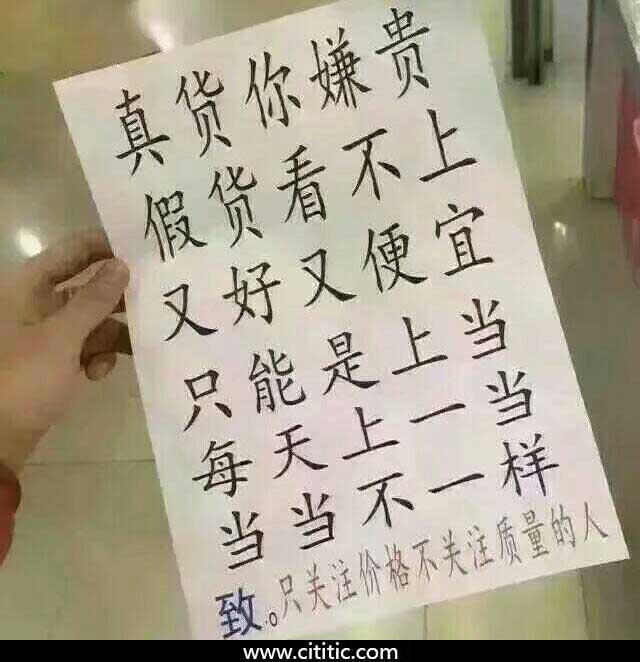 真货你嫌贵
假货看不上
又好又便宜
只能是上当
每天上一当
当当不一样
致。只关注价格不关注质量的人
www.cititic.com